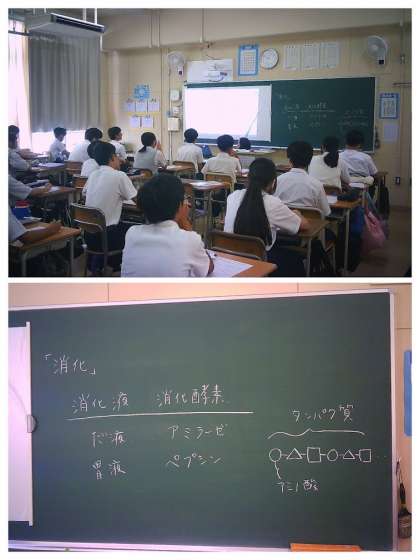 「消化」
消化液 消化酵素
だ液 アミラーゼ
胃液 ペプシン
タンパク質
アミノ酸